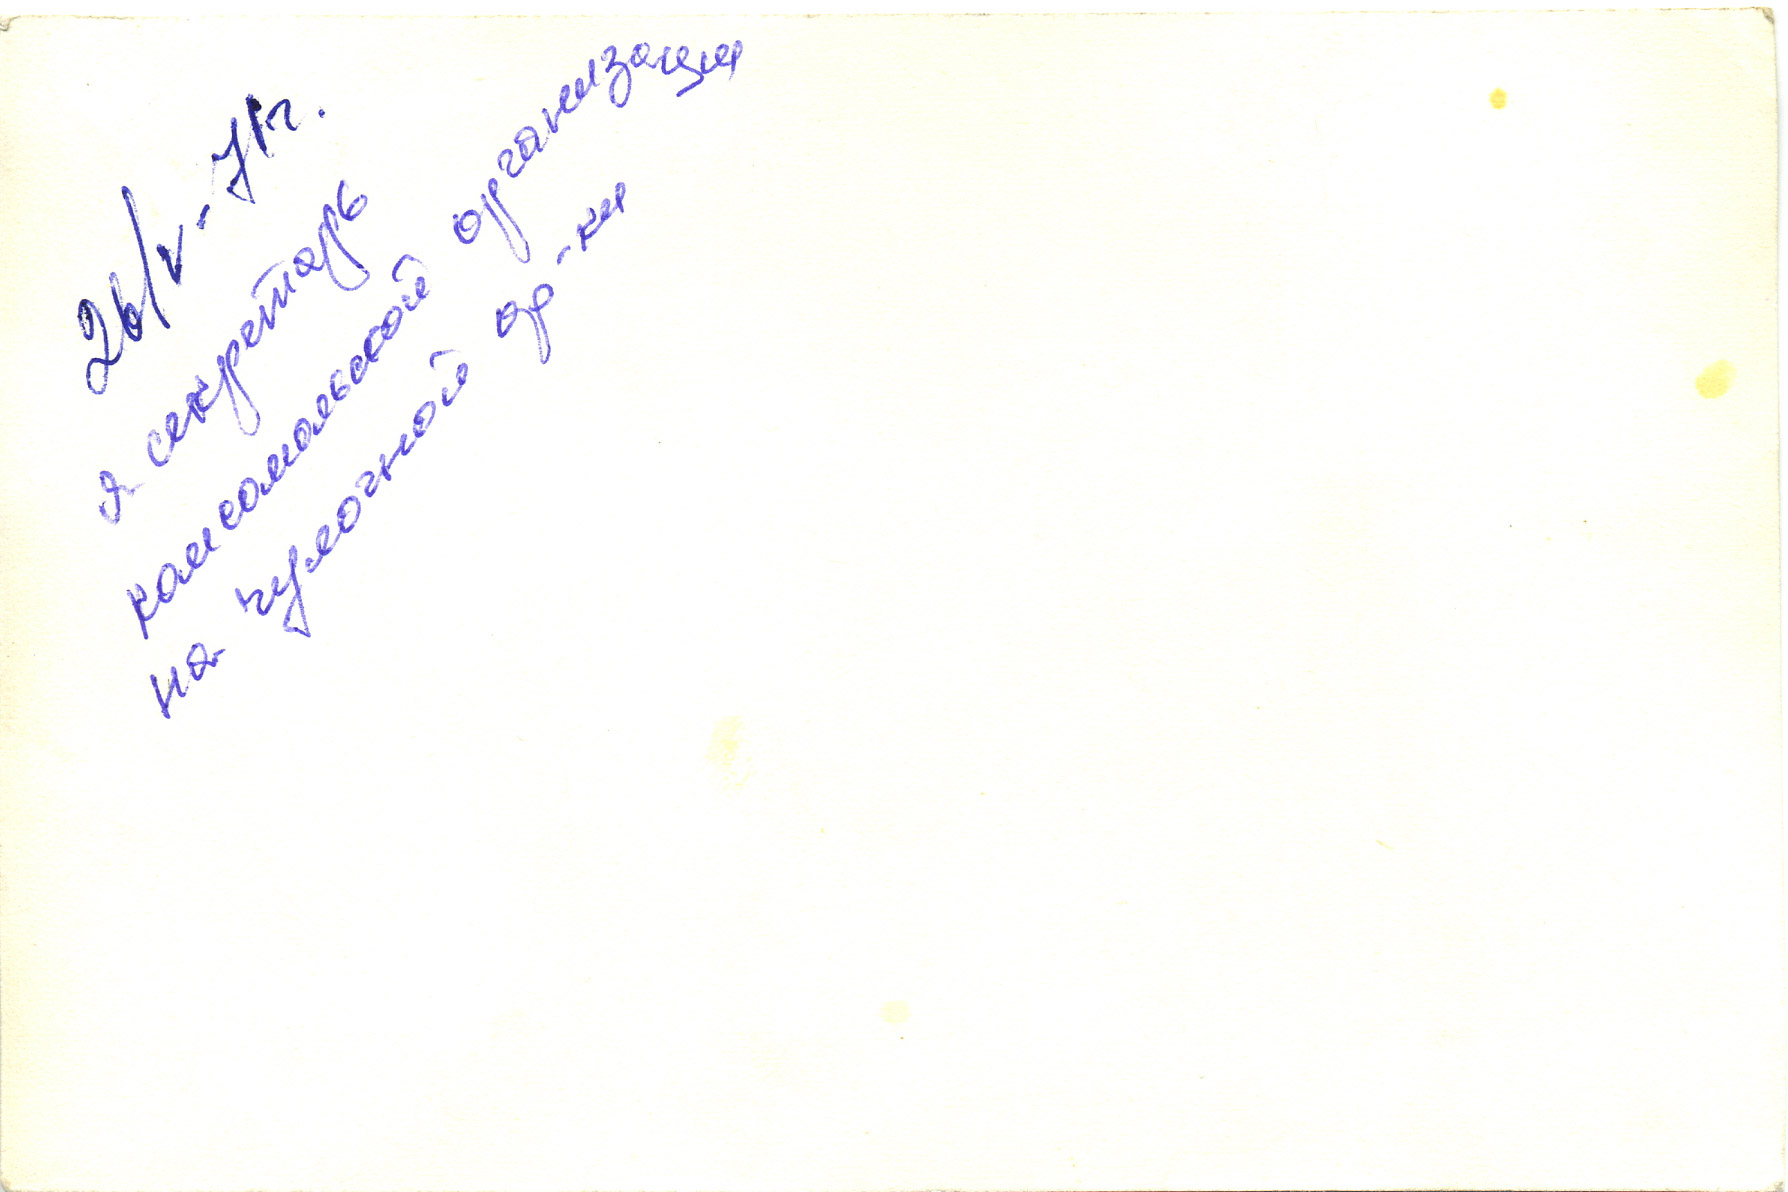 26/V-71г.
я секретарь
комсомольской организации
на чулочной ф-ки